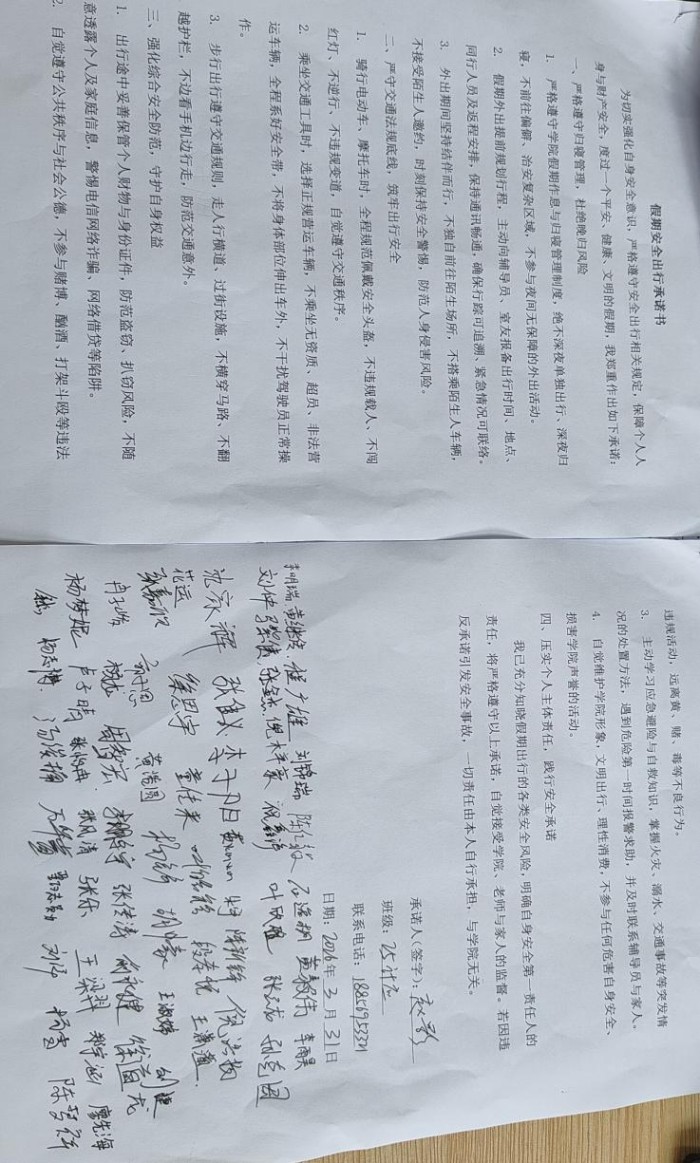 假期安全出行承诺书
为切实强化自身安全意识，严格遵守安全出行相关规定，保障个人人
身与财产安全，度过一个平安、健康、文明的假期，我郑重作出如下承诺：
一、严格遵守归寝管理，杜绝晚归风险
1. 严格遵守学院假期作息与归寝管理制度，绝不深夜单独出行、深夜归
寝，不前往偏僻、治安复杂区域，不参与夜间无保障的外出活动。
2. 假期外出提前规划行程，主动向辅导员、室友报备出行时间、地点、
同行人员及返程安排，保持通讯畅通，确保行踪可追溯、紧急情况可联络。
3. 外出期间坚持结伴而行，不独自前往陌生场所，不搭乘陌生人车辆，
不接受陌生人邀约，时刻保持安全警惕，防范人身侵害风险。
二、严守交通法规底线，筑牢出行安全
1. 骑行电动车、摩托车时，全程规范佩戴安全头盔，不违规载人、不闯
红灯、不逆行、不违规变道，自觉遵守交通秩序。
2. 乘坐交通工具时，选择正规营运车辆，不乘坐无资质、超员、非法营
运车辆，全程系好安全带，不将身体部位伸出车外，不干扰驾驶员正常操
作。
3. 步行出行遵守交通规则，走人行横道、过街设施，不横穿马路、不翻
越护栏，不边看手机边行走，防范交通意外。
三、强化综合安全防范，守护自身权益
1. 出行途中妥善保管个人财物与身份证件，防范盗窃、扒窃风险，不随
意透露个人及家庭信息，警惕电信网络诈骗、网络借贷等陷阱。
2. 自觉遵守公共秩序与社会公德，不参与赌博、酗酒、打架斗殴等违法
违规活动，远离黄、赌、毒等不良行为。
3. 主动学习应急避险与自救知识，掌握火灾、溺水、交通事故等突发情
况的处置方法，遇到危险第一时间报警求助，并及时联系辅导员与家人。
4. 自觉维护学院形象，文明出行、理性消费，不参与任何危害自身安全、
损害学院声誉的活动。
四、压实个人主体责任，践行安全承诺
我已充分知晓假期出行的各类安全风险，明确自身安全第一责任人的
责任，将严格遵守以上承诺，自觉接受学院、老师与家人的监督。若因违
反承诺引发安全事故，一切责任由本人自行承担，与学院无关。
承诺人（签字）：
班级：25
联系电话：
日期：2026年3月31日
李明瑞 崔广雄 陈仁毅
刘仲 叶欣
沈家辉 李子月
花运 徐思宇 段春悦
黄浩圆 杨锦
卢子晗 周智宏 张佳涛 俞永健
杨梦妮 张风清 张乐 王梁羿
杨志博 冯俊翰 刘 陈梦